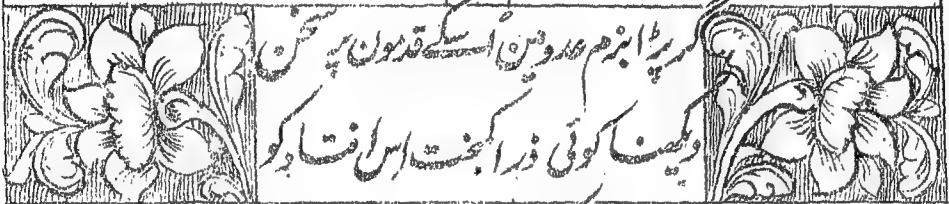 گر پڑا بزم عدو مین اُسکے قدمون پر سخن
دیکھنا کوئی ذرا کمبخت اس افتاد کو